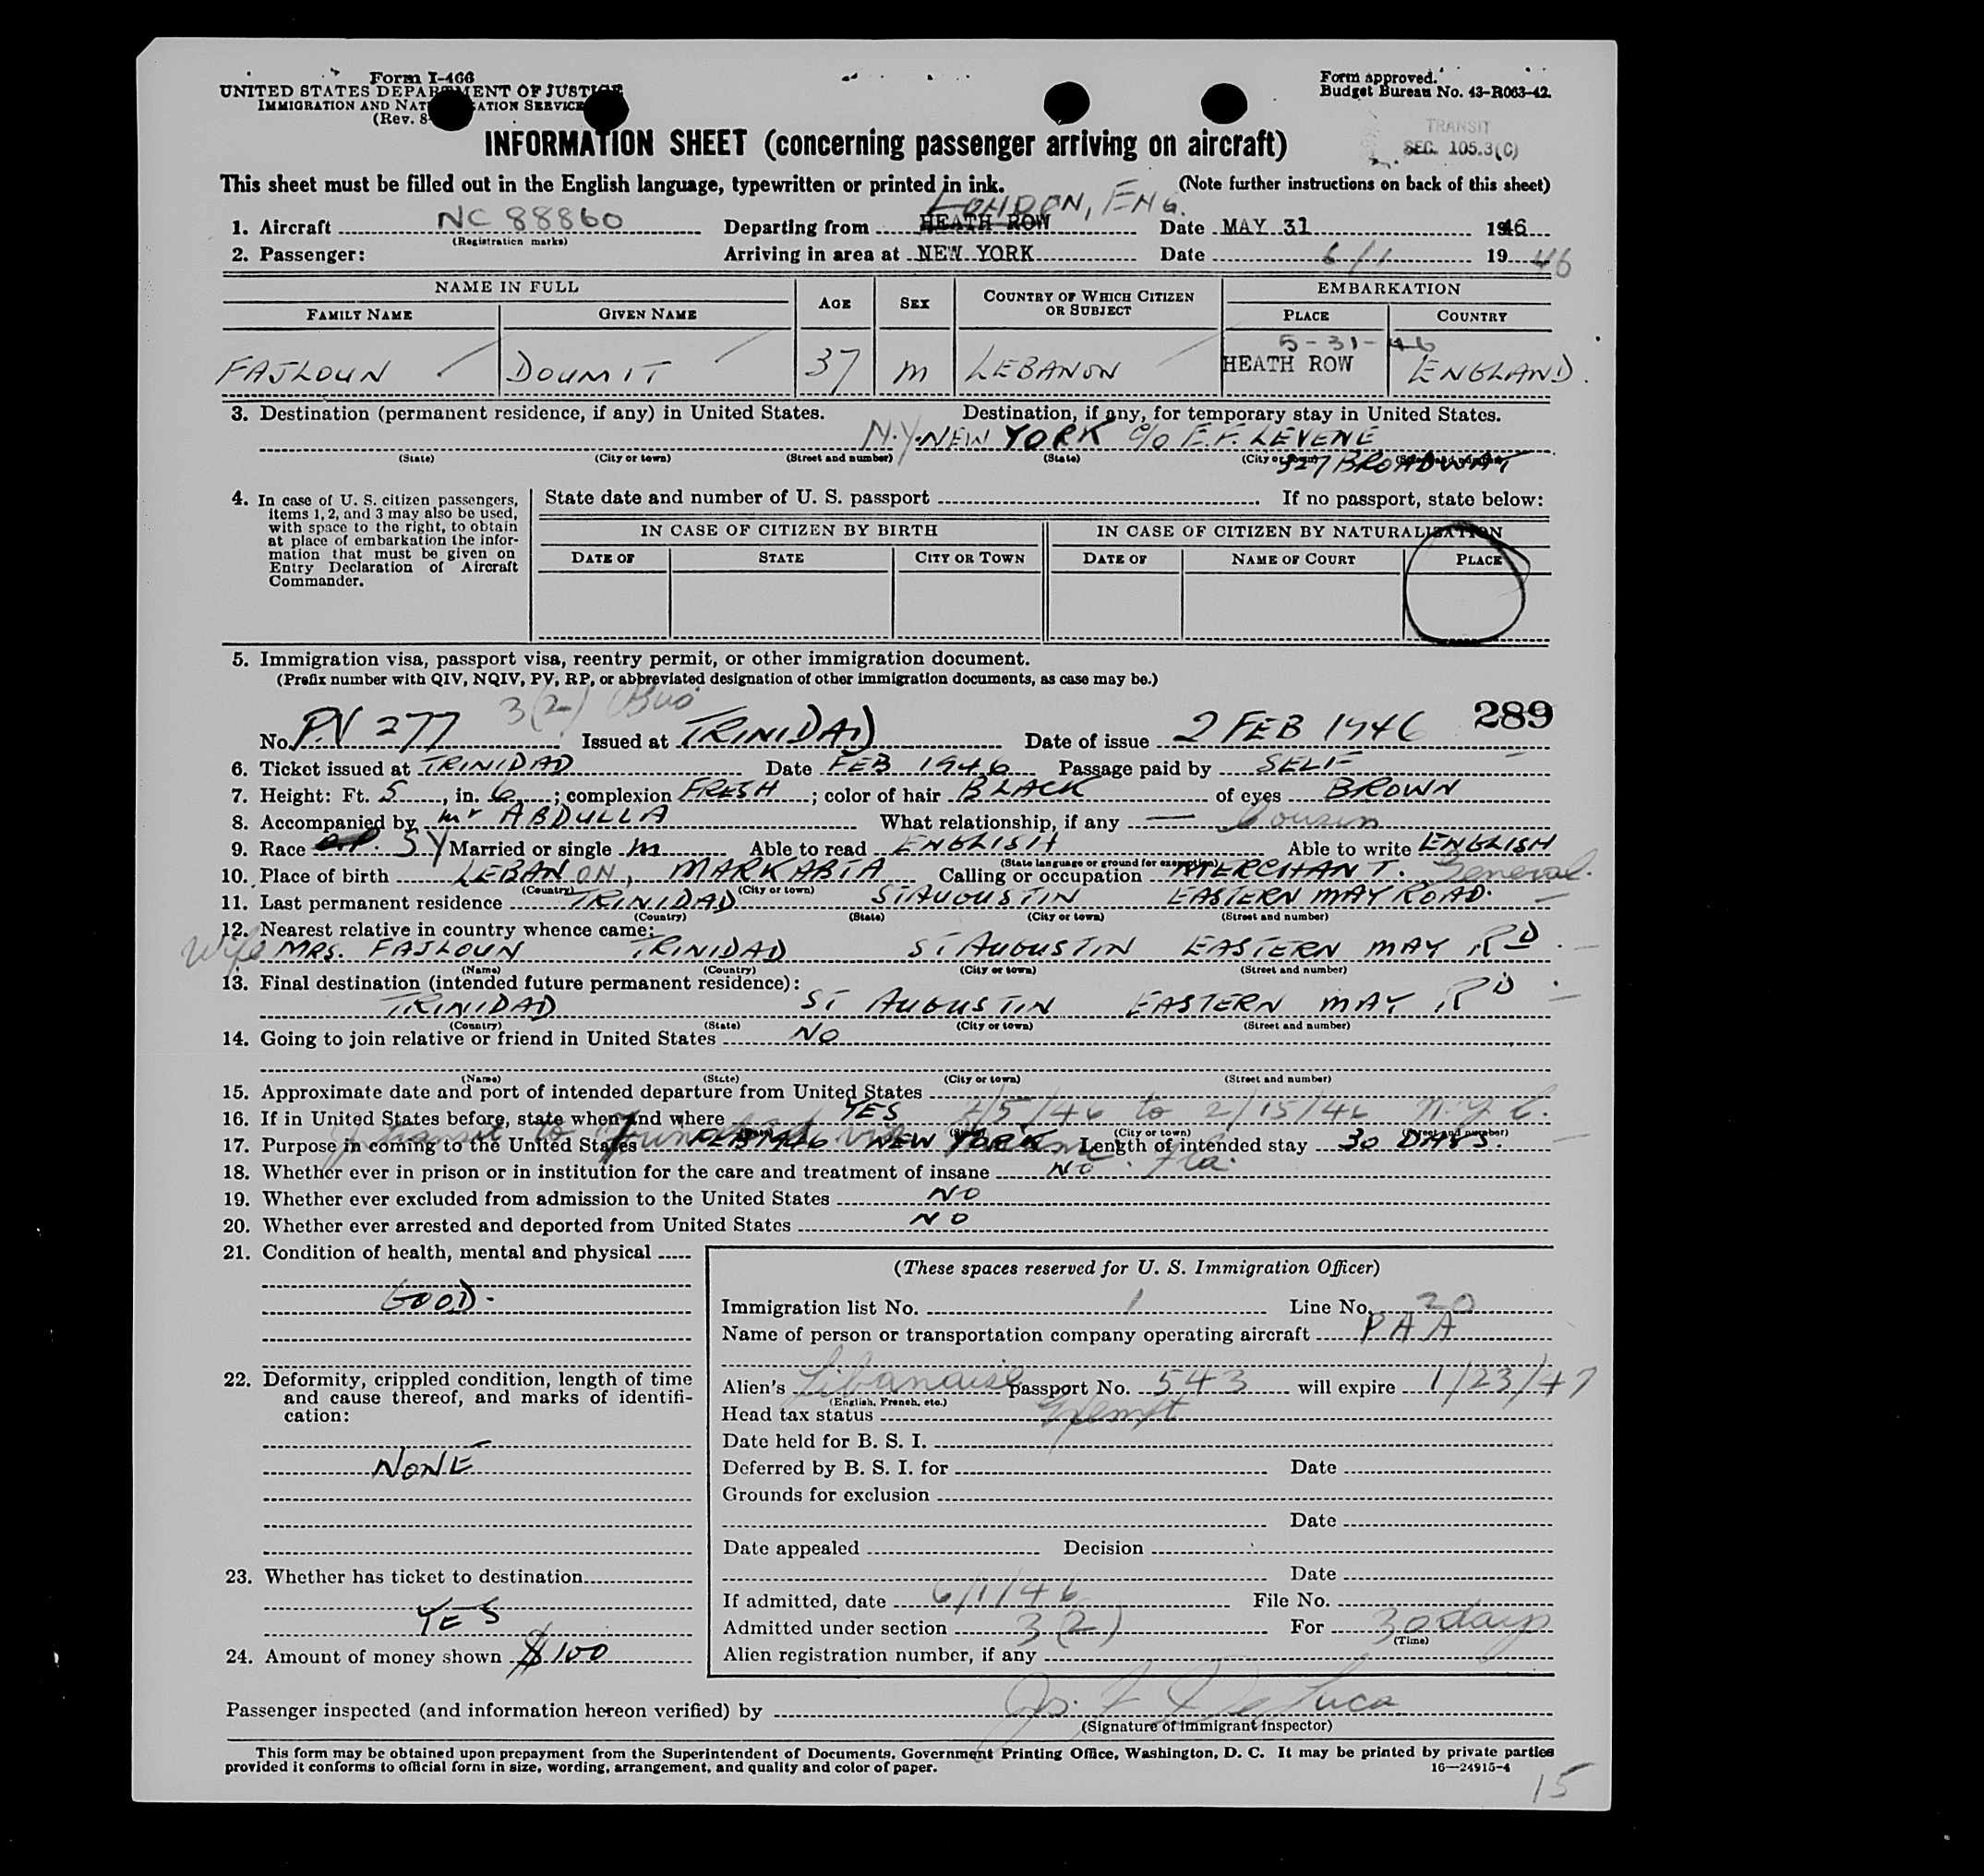 Form I-466
UNITED STATES DEPARTMENT OF JUSTICE
IMMIGRATION AND NATURALIZATION SERVICE
(Rev. 8-
Form approved.
Budget Bureau No. 43-R063-42.
TRANSIT
SEC. 105.3(C)
INFORMATION SHEET (concerning passenger arriving on aircraft)
This sheet must be filled out in the English language, typewritten or printed in ink. (Note further instructions on back of this sheet)
LONDON, ENG.
1. Aircraft NC 88860 Departing from HEATH ROW Date MAY 31 1946
(Registration marks)
2. Passenger: Arriving in area at NEW YORK Date 6/1 19 46
NAME IN FULL AGE SEX COUNTRY OF WHICH CITIZEN OR SUBJECT EMBARKATION
FAMILY NAME GIVEN NAME PLACE COUNTRY
5-31-46
FAJLOUN DOUMIT 37 M LEBANON HEATH ROW ENGLAND.
3. Destination (permanent residence, if any) in United States. Destination, if any, for temporary stay in United States.
N.Y. NEW YORK C/O E.F. LEVENE
(State) (City or town) (Street and number) (State) (City or town) (Street and number)
327 BROADWAY
4. In case of U. S. citizen passengers, items 1, 2, and 3 may also be used, with space to the right, to obtain at place of embarkation the information that must be given on Entry Declaration of Aircraft Commander.
State date and number of U. S. passport If no passport, state below:
IN CASE OF CITIZEN BY BIRTH IN CASE OF CITIZEN BY NATURALIZATION
DATE OF STATE CITY OR TOWN DATE OF NAME OF COURT PLACE
5. Immigration visa, passport visa, reentry permit, or other immigration document.
(Prefix number with QIV, NQIV, PV, RP, or abbreviated designation of other immigration documents, as case may be.)
3(2) Bus 289
No. P.V 277 Issued at TRINIDAD Date of issue 2 FEB 1946
6. Ticket issued at TRINIDAD Date FEB 1946 Passage paid by SELF
7. Height: Ft. 5, in. 6; complexion FRESH; color of hair BLACK of eyes BROWN
8. Accompanied by Mr ABDULLA What relationship, if any — Cousin
9. Race SY Married or single M Able to read ENGLISH Able to write ENGLISH
(State language or ground for exemption)
10. Place of birth LEBANON, MARKABTA Calling or occupation MERCHANT. General.
(Country) (City or town)
11. Last permanent residence TRINIDAD ST AUGUSTIN EASTERN MAY ROAD.
(Country) (State) (City or town) (Street and number)
12. Nearest relative in country whence came:
Wife MRS. FAJLOUN TRINIDAD ST AUGUSTIN EASTERN MAY RD.
(Name) (Country) (City or town) (Street and number)
13. Final destination (intended future permanent residence):
TRINIDAD ST AUGUSTIN EASTERN MAY RD.
(Country) (State) (City or town) (Street and number)
14. Going to join relative or friend in United States NO
(Name) (State) (City or town) (Street and number)
15. Approximate date and port of intended departure from United States
16. If in United States before, state when and where YES 2/5/46 to 2/15/46 N.Y.C.
(State) (City or town) (Street and number)
transit to Trinidad via
17. Purpose in coming to the United States FEB 1946 NEW YORK Length of intended stay 30 DAYS.
18. Whether ever in prison or in institution for the care and treatment of insane NO. Fla.
19. Whether ever excluded from admission to the United States NO
20. Whether ever arrested and deported from United States NO
21. Condition of health, mental and physical
GOOD.
22. Deformity, crippled condition, length of time and cause thereof, and marks of identification:
NONE
23. Whether has ticket to destination
YES
24. Amount of money shown $100
(These spaces reserved for U. S. Immigration Officer)
Immigration list No. 1 Line No. 20
Name of person or transportation company operating aircraft PAA
Alien's Libanaise passport No. 543 will expire 1/23/47
(English, French, etc.)
Head tax status Exempt
Date held for B. S. I.
Deferred by B. S. I. for Date
Grounds for exclusion
Date
Date appealed Decision
Date
If admitted, date 6/1/46 File No.
Admitted under section 3(2) For 30 days
(Time)
Alien registration number, if any
Passenger inspected (and information hereon verified) by Js. F De Luca
(Signature of immigrant inspector)
This form may be obtained upon prepayment from the Superintendent of Documents, Government Printing Office, Washington, D. C. It may be printed by private parties
provided it conforms to official form in size, wording, arrangement, and quality and color of paper. 16—24915-4
15